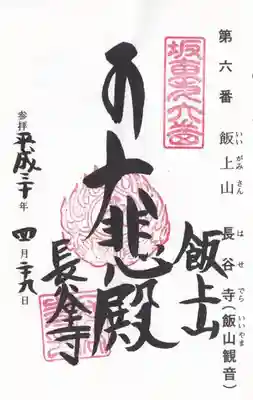 第六番 飯上山 長谷寺(飯山観音)
いいがみさん はせでら いいやま
坂東第六番
飯上山
大悲殿
長谷寺
参拝 平成三十年 四月二十九日